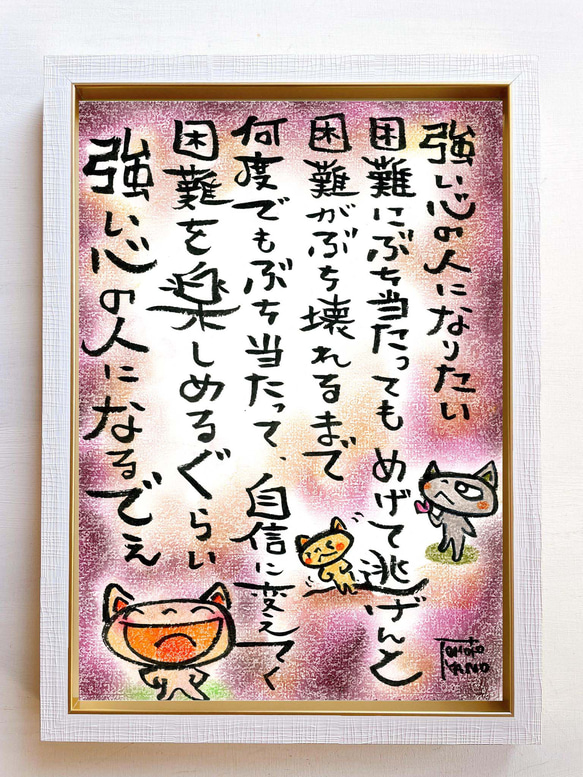 強い心の人になりたい
困難にぶち当たっても めげて逃げんと
困難がぶち壊れるまで
何度でもぶち当たって、自信に変えてく
困難を楽しめるぐらい
強い心の人になるでぇ
TOMOKO
KANO